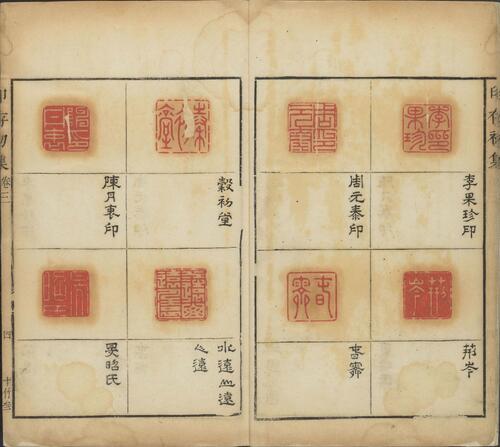 印存初集
李果珍印
周元泰印
荊岑
穀初堂
陳丹衷印
水遠山遠
心遠
旻昭氏
印存初集
卷三
四
十竹